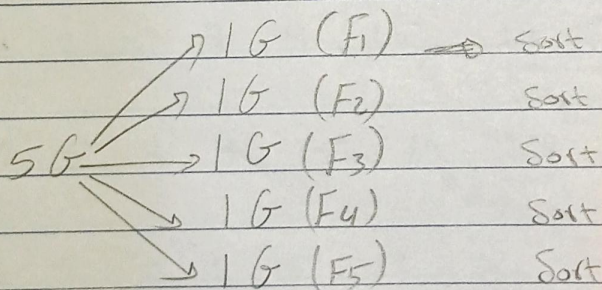 1 G (F1) → Sort
1 G (F2) Sort
5 G → 1 G (F3) Sort
1 G (F4) Sort
1 G (F5) Sort